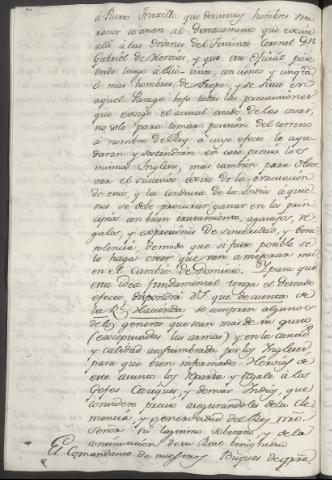 á Puerto Truxillo, que doscientos hombres
se unan al Destacamento que
allí á las Ordenes del Teniente Coronel Dn
Gabriel de Hervias, y que un Oficial pase
desde luego á Rio-tinto, con ciento y cinq.ta
ó mas hombres de Tropa, y se situe en
aquel Parage bajo todas las precauciones
que exige el actual estado de las cosas,
no solo para tomar posesion del terreno
á nombre del Rey á cuyo efecto le ayu-
daran y sostendrán en caso preciso los
mismos Ingleses, mas tambien para obser-
var el succesivo exito de la evacuacion
de esos, y la conducta de los Indios á quie-
nes se debe procurar ganar en los prin-
cipios con buen tratamiento, agasajos, re-
galos, y expresiones de sinceridad, y bene-
volencia, de modo que si fuere posible se
lo haga creer que van á mejorar
en el Cambio de Dominio. Y para que
esta idea fundamental tenga el deseado
efecto, dispondrá V.S. que de cuenta de
la Rl. Hacienda se compren algunos
de los generos que sean mas de su gusto
(exceptuadas las armas) y en la cantid.
y calidad acostumbrada por los Ingleses
para que bien informado Hervias de
este asunto los reparta y regale á los
Gefes Caciques, y demas Indios que
considere preciso asegurandoles de la Cle-
mencia y generosidad del Rey ntro.
Señor su legitimo Soberano y de la
continuacion de su Real benignidad
El Comandante de nuestros Buques de grra.